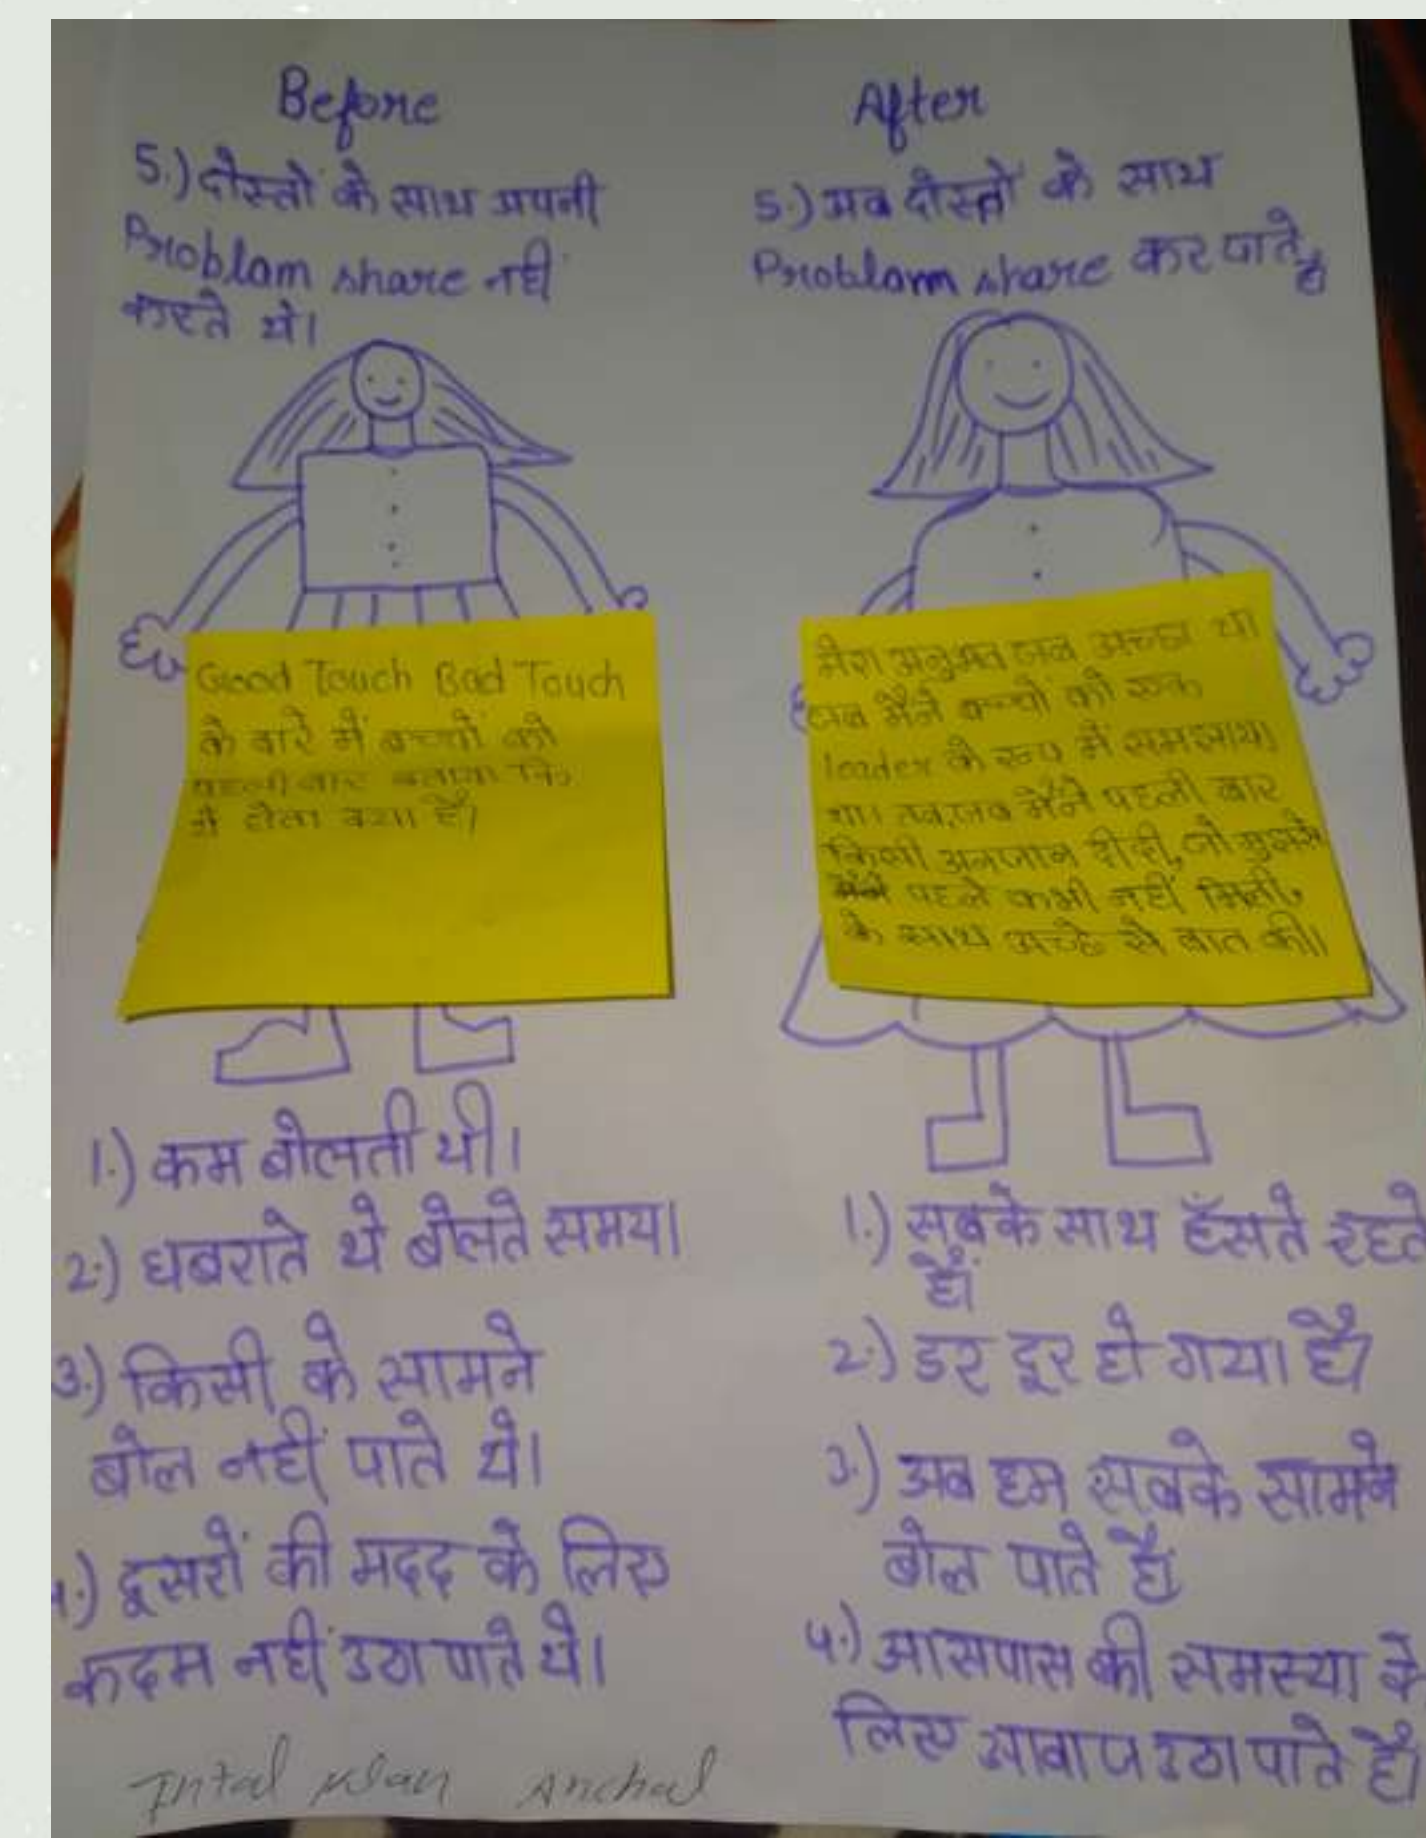 Before
5.) दोस्तों के साथ अपनी
Problam share नहीं
करते थे।
Good Touch Bad Touch
के बारे में बच्चों को
पहली बार बताया कि
ये होता क्या है।
1.) कम बोलती थी।
2.) घबराते थे बोलते समय।
3.) किसी के सामने
बोल नहीं पाते थे।
4.) दूसरों की मदद के लिए
कदम नहीं उठा पाते थे।
After
5.) अब दोस्तों के साथ
Problam share कर पाते है
मेरा अनुभव जब अच्छा था
जब मैंने बच्चों को एक
leader के रूप में समझाया
था। तब,जब मैंने पहली बार
किसी अनजान दीदी, जो मुझसे
पहले कभी नहीं मिली,
के साथ अच्छे से बात की।
1.) सबके साथ हँसते रहते
हैं।
2.) डर दूर हो गया है।
3.) अब हम सबके सामने
बोल पाते है।
4.) आसपास की समस्या के
लिए आवाज उठा पाते हैं।
Anchal